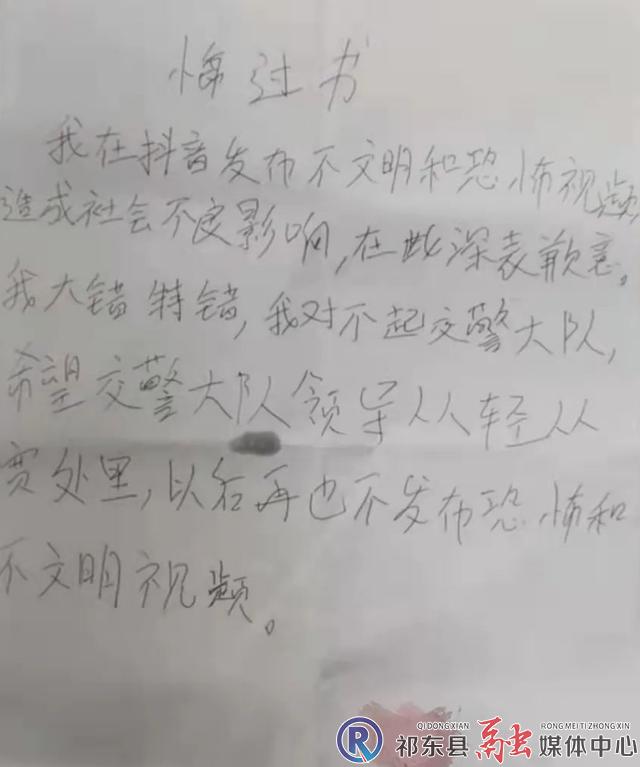 悔过书
我在抖音发布不文明和恐怖视频
造成社会不良影响,在此深表歉意。
我大错特错,我对不起交警大队,
希望交警大队领导从轻从
宽处里,以后再也不发布恐怖和
不文明视频。
QI DONG XIAN RONG MEI TI ZHONG XIN
祁东县融媒体中心